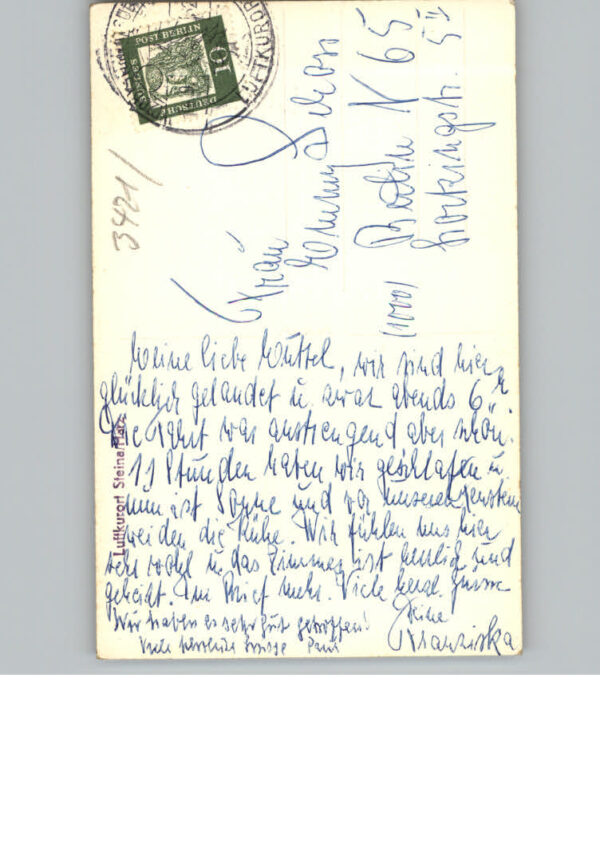 Meine liebe Muttel, wir sind hier
glücklich gelandet u. zwar abends 6 h.
Die Fahrt war anstrengend aber schön.
11 Stunden haben wir geschlafen u
nun ist Sonne und vor unseren Fenstern
weiden die Kühe. Wir fühlen uns hier
sehr wohl u. das Zimmer ist herrlich und
geheizt. Im Brief mehr. Viele herzl. Grüsse
Deine
Franziska
Wir haben es sehr gut getroffen!
Viele herzliche Grüsse Paul
Frau
Emmy
Berlin N 65
(1000)
3421/
Luftkurort Steina/Harz
DEUTSCHE
POST BERLIN
10